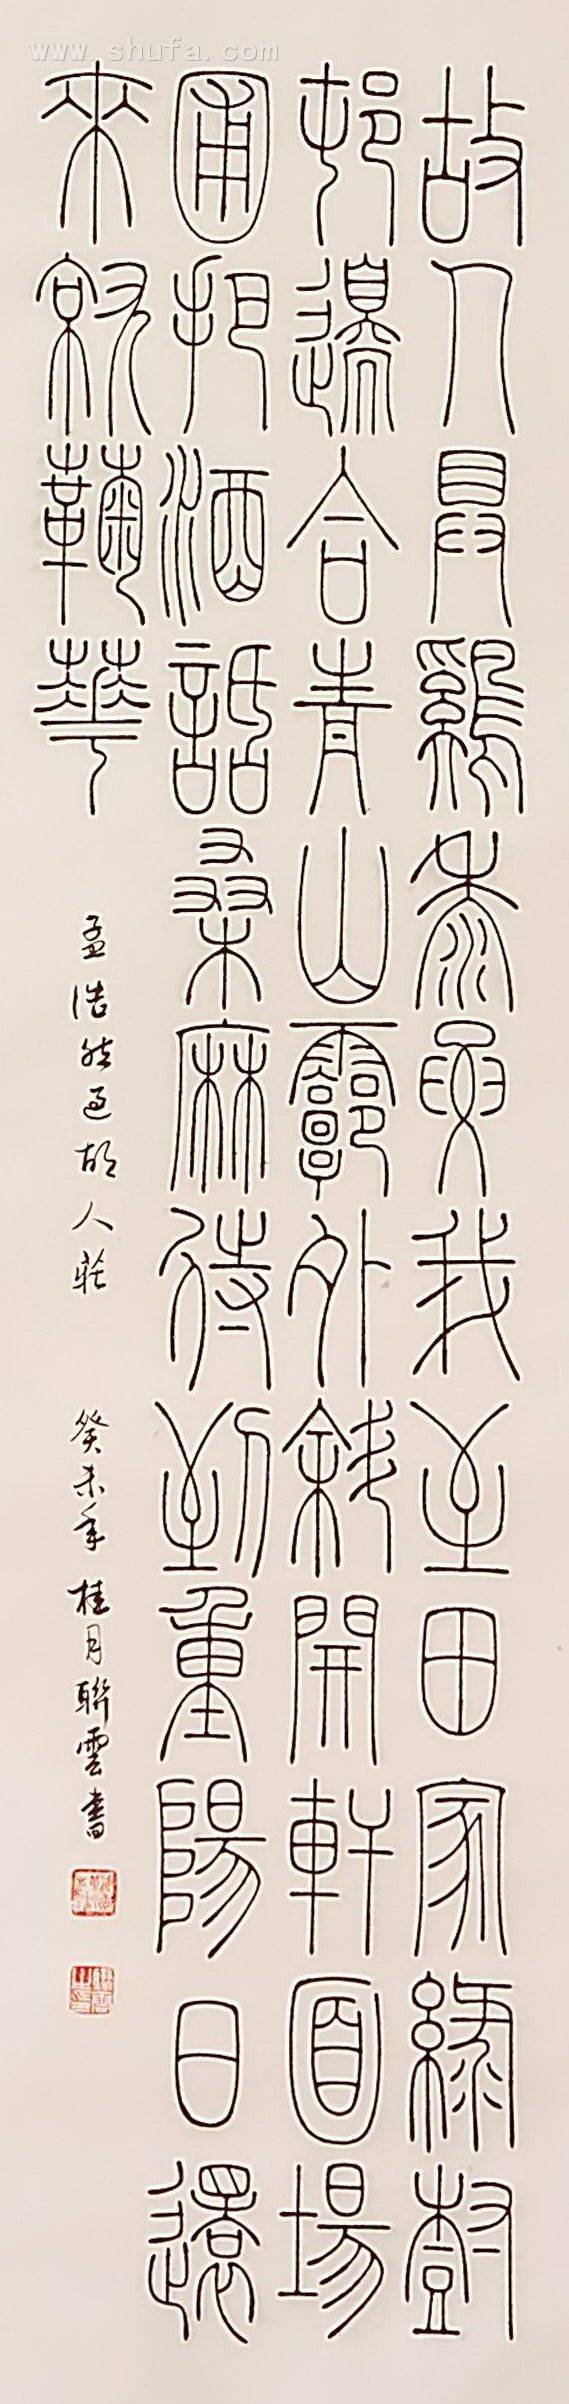 www.shufa.com
故人具雞黍與我至田家綠樹
邨邊合青山郭外斜開軒面場
圃把酒話桑麻待到重陽日還
來就鞠華
孟浩然過故人莊 癸未年桂月聯雲書